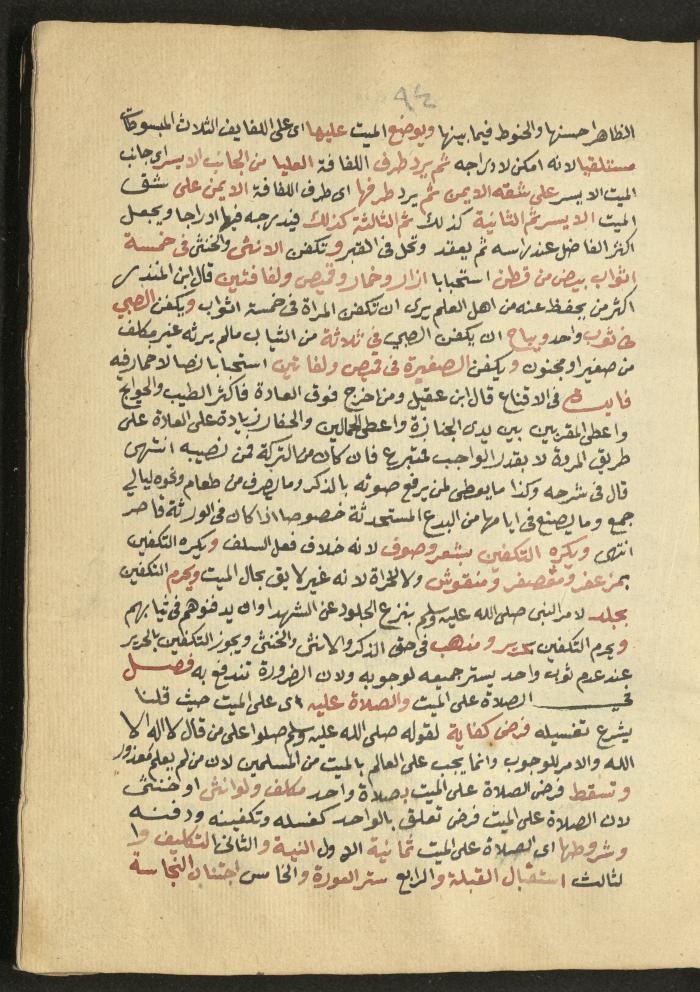 ٩٤
الظاهر احسنها والحنوط فيما بينها ويوضع الميت عليها اى على اللفايف الثلاث المبسوطات
مستلقيا لانه امكن لادراجه ثم يرد طرف اللفافة العليا من الجانب الايسر اى جانب
الميت الايسر على شقه الايمن ثم يرد طرفها اى طرف اللفافة الايمن على شق
الميت الايسر ثم الثانية كذلك ثم الثالثة كذلك فيدرجه فيها ادراجا ويجعل
اكثر الفاضل عند راسه ثم يعقد وتحل فى القبر وتكفن الانثى والخنثى فى خمسة
اثواب بيض من قطن استحبابا ازار وخمار وقميص ولفافتين قال ابن المنذر
اكثر من يحفظ عنه من اهل العلم يرى ان تكفن المراة فى خمسة اثواب ويكفن الصبي
فى ثوب واحد ويباح ان يكفن الصبي فى ثلاثة من الثياب مالم يرثه غير مكلف
من صغير او مجنون ويكفن الصغيرة فى قميص ولفافتين استحبابا نصا لا خمار فيه
فايدة فى الاقناع قال ابن عقيل ومن اخرج فوق العادة فاكثر الطيب والحوايج
واعطى المقربين بين يدى الجنازة واعطى الحمالين والحفار زيادة على العادة على
طريق المروة لا بقدر الواجب فمتبرع فان كان من التركة فمن نصيبه انتهى
قال فى شرحه وكذا ما يعطى لمن يرفع صوته بالذكر وما يصرف من طعام ونحوه ليالي
جمع وما يصنع فى ايامها من البدع المستحدثة خصوصا اذا كان فى الورثة قاصر
انتهى ويكره التكفين بشعر وصوف لانه خلاف فعل السلف ويكره التكفين
بمزعفر ومعصفر ومنقوش ولا لحراة لانه غير لايق بحال الميت ويحرم التكفين
بجلد لامر النبى صلى الله عليه وسلم بنزع الجلود عن الشهدا وان يدفنوهم فى ثيابهم
ويحرم التكفين بحرير ومذهب فى حق الذكر والانثى والخنثى ويجوز التكفين بالحرير
عند عدم ثوب واحد يستر جميعه لوجوبه ولان الضرورة تندفع به فصل
فى الصلاة على الميت والصلاة عليه اى على الميت حيث قلنا
يشرع تغسيله فرض كفاية لقوله صلى الله عليه وسلم صلوا على من قال لا اله الا
الله والامر للوجوب وانما يجب على العالم بالميت من المسلمين لان من لم يعلم معذور
وتسقط فرض الصلاة على الميت بصلاة واحد مكلف ولو انثى او خنثى
لان الصلاة على الميت فرض تعلق بالواحد كغسله وتكفينه ودفنه
وشروطها اى الصلاة على الميت ثمانية الاول النية والثانى التكليف وا
لثالث استقبال القبلة والرابع ستر العورة والخامس اجتناب النجاسة